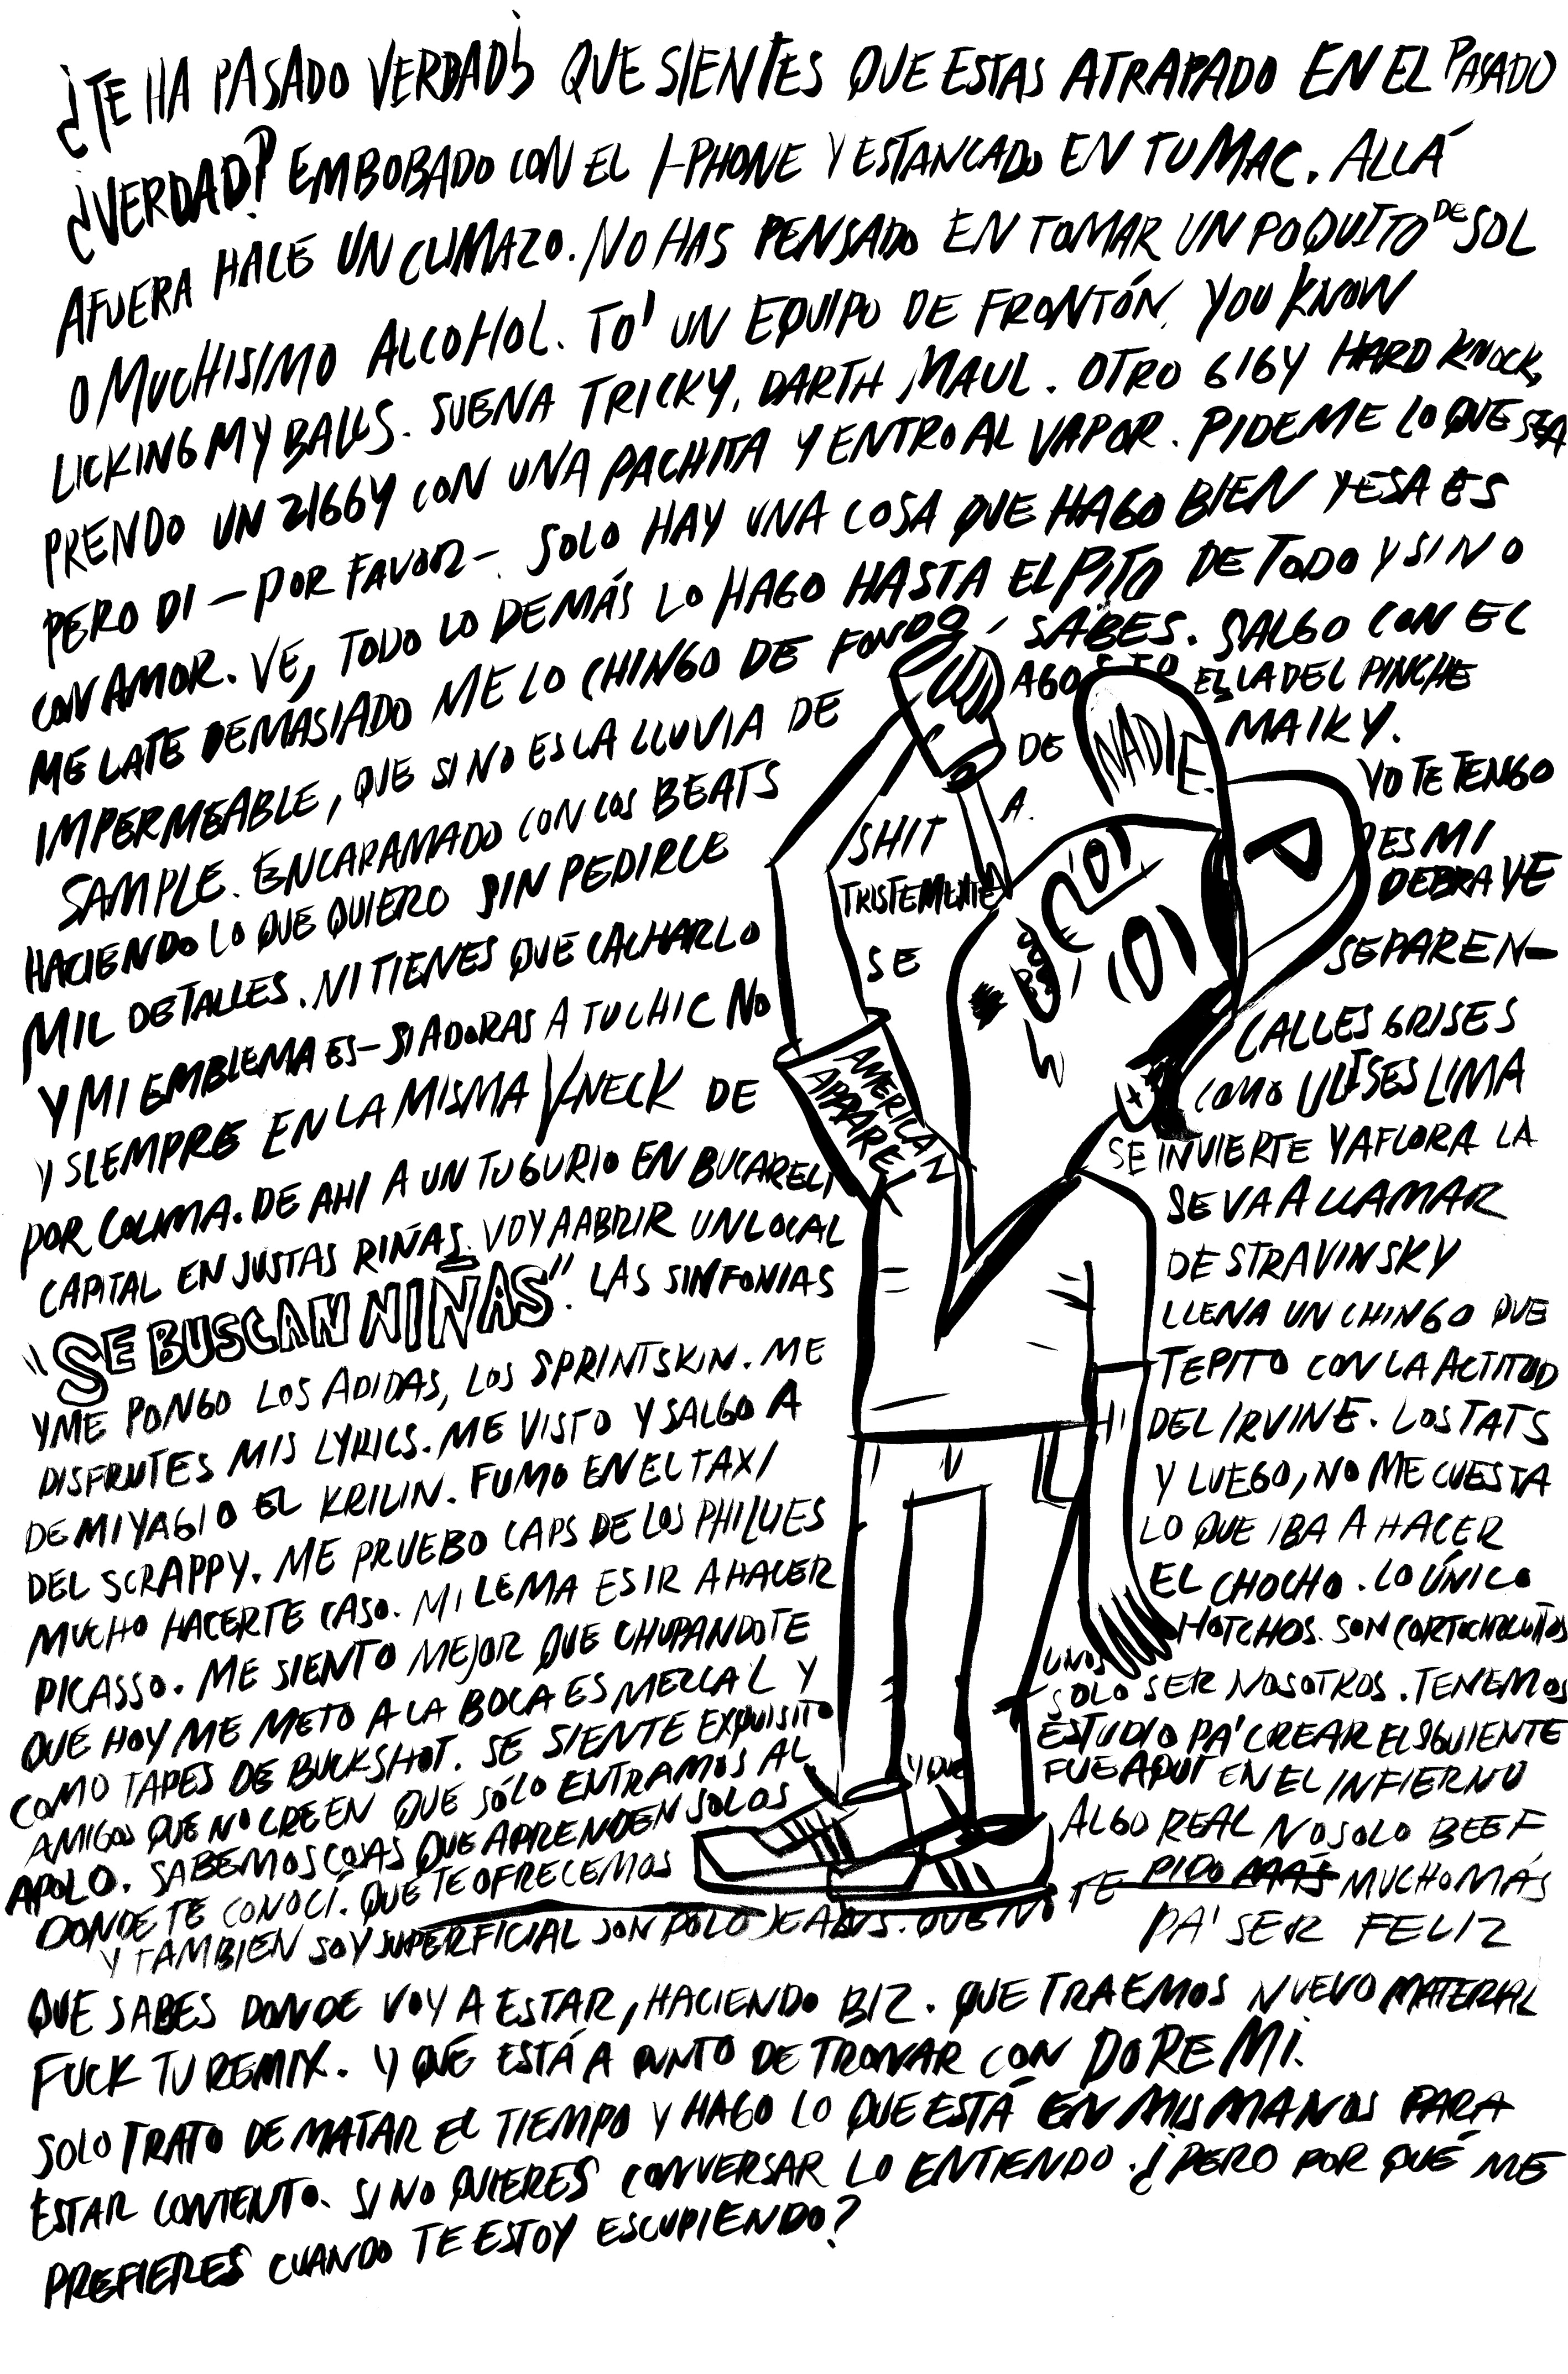 ¿TE HA PASADO VERDAD? QUE SIENTES QUE ESTAS ATRAPADO EN EL PASADO
¿VERDAD? EMBOBADO CON EL I-PHONE Y ESTANCADO EN TU MAC. ALLÁ
AFUERA HACE UN CLIMAZO. NO HAS PENSADO EN TOMAR UN POQUITO DE SOL
O MUCHISIMO ALCOHOL. TO' UN EQUIPO DE FRONTÓN. YOU KNOW
LICKING MY BALLS. SUENA TRICKY, DARTH MAUL. OTRO GIGY HARD KNOCK,
PRENDO UN ZIGGY CON UNA PACHITA Y ENTRO AL VAPOR. PIDEME LO QUE SEA
PERO DI - POR FAVOR -. SOLO HAY UNA COSA QUE HAGO BIEN Y ESA ES
CON AMOR. VE, TODO LO DEMÁS LO HAGO HASTA EL PITO DE TODO Y SI NO
ME LATE DEMASIADO ME LO CHINGO DE FONDO, SABES. SALGO CON EL
IMPERMEABLE, QUE SI NO ES LA LLUVIA DE AGOSTO ES LA DEL PINCHE
SAMPLE. ENCARAMADO CON LOS BEATS DE NADIE. MAIKY.
HACIENDO LO QUE QUIERO SIN PEDIRLE SHIT A. YO TE TENGO
MIL DETALLES. NI TIENES QUE CACHARLO TRISTEMENTE ES MI DEBRAYE
Y MI EMBLEMA ES - SI ADORAS A TU CHIC NO SE SEPAREN-
Y SIEMPRE EN LA MISMA V-NECK DE AMERICAN APPAREL CALLES GRISES
POR COLIMA. DE AHI A UN TUGURIO EN BUCARELI COMO ULISES LIMA
CAPITAL EN JUSTAS RIÑAS. VOY A ABRIR UN LOCAL SE INVIERTE Y AFLORA LA
"SE BUSCAN NIÑAS". LAS SINFONIAS SE VA A LLAMAR
Y ME PONGO LOS ADIDAS, LOS SPRINTSKIN. ME DE STRAVINSKY
DISFRUTES MIS LYRICS. ME VISTO Y SALGO A LLENA UN CHINGO QUE
DE MIYAGI O EL KRILIN. FUMO EN EL TAXI TEPITO CON LA ACTITUD
DEL SCRAPPY. ME PRUEBO CAPS DE LOS PHILLIES DEL IRVINE. LOS TATS
MUCHO HACERTE CASO. MI LEMA ES IR A HACER Y LUEGO, NO ME CUESTA
PICASSO. ME SIENTO MEJOR QUE CHUPANDOTE LO QUE IBA A HACER
QUE HOY ME METO A LA BOCA ES MEZCAL Y EL CHOCHO. LO ÚNICO
COMO TAPES DE BUCKSHOT. SE SIENTE EXQUISITO UNOS HOTCHOS. SON CORTOCIRCUITOS
AMIGOS QUE NO CREEN QUE SÓLO ENTRAMOS AL SOLO SER NOSOTROS. TENEMOS
APOLO. SABEMOS COSAS QUE APRENDEN SOLOS ESTUDIO PA' CREAR EL SIGUIENTE
DONDE TE CONOCÍ. QUE TE OFRECEMOS Y QUE FUE AQUÍ EN EL INFIERNO
ALGO REAL NO SOLO BEEF
Y TAMBIEN SOY SUPERFICIAL SON POLO JEANS. QUE NO TE PIDO MÁS MUCHO MÁS
PA' SER FELIZ
QUE SABES DONDE VOY A ESTAR, HACIENDO BIZ. QUE TRAEMOS NUEVO MATERIAL
FUCK TU REMIX. Y QUE ESTÁ A PUNTO DE TRONAR CON DO RE MI.
SOLO TRATO DE MATAR EL TIEMPO Y HAGO LO QUE ESTÁ EN MIS MANOS PARA
ESTAR CONTENTO. SI NO QUIERES CONVERSAR LO ENTIENDO. ¿PERO POR QUÉ ME
PREFIERES CUANDO TE ESTOY ESCUPIENDO?